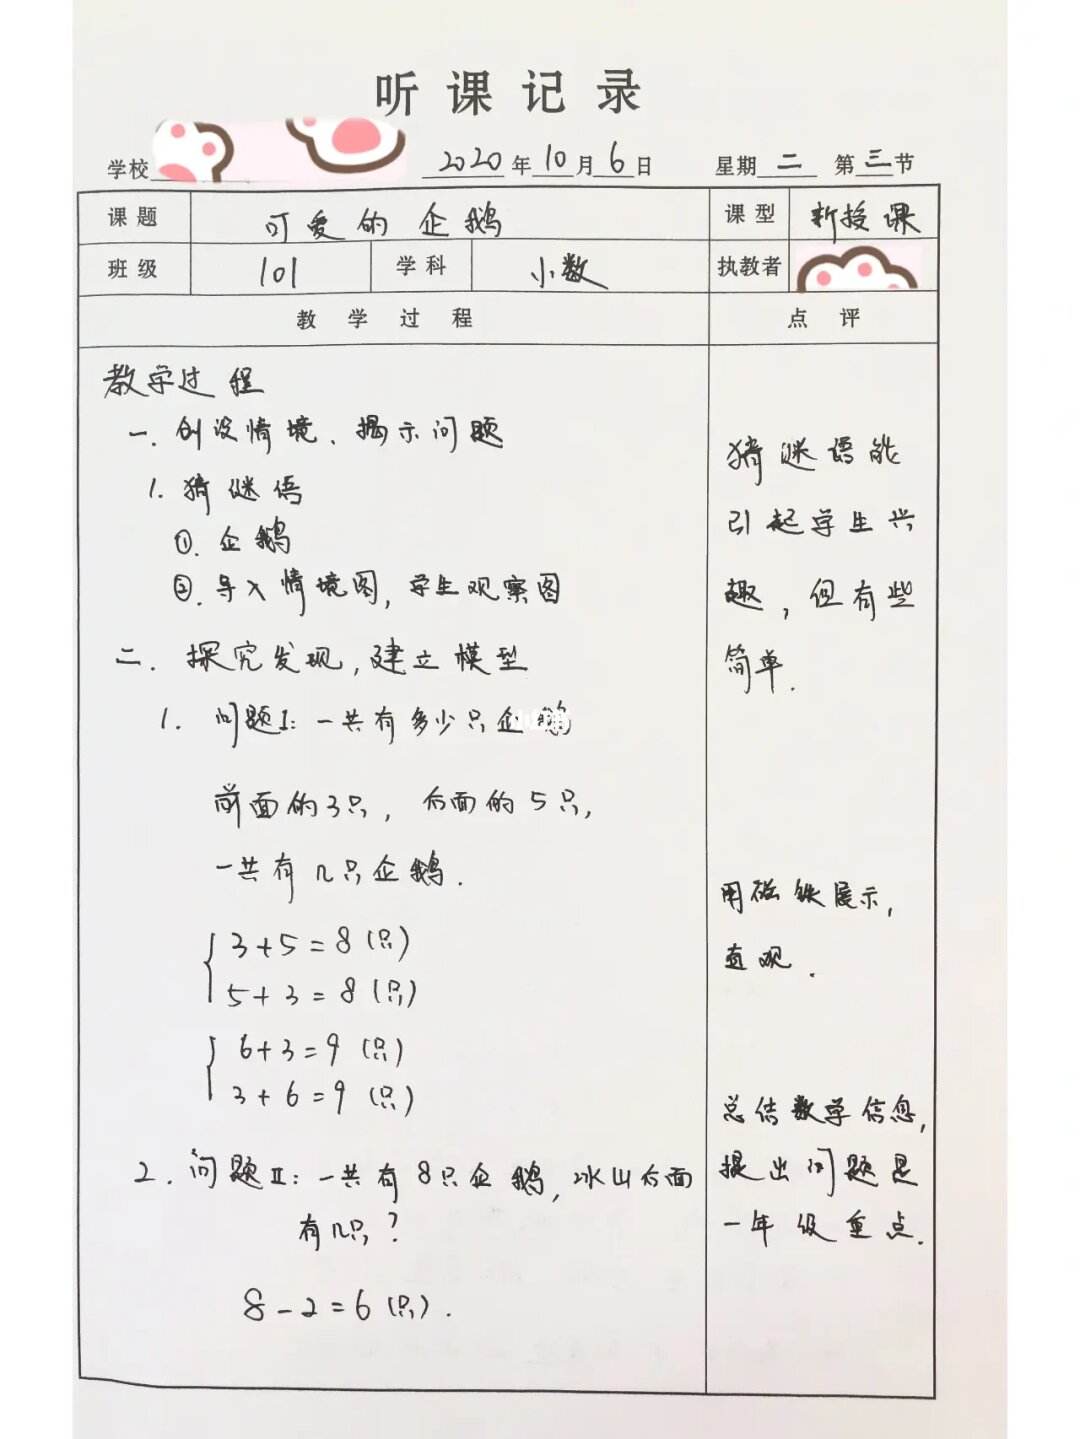 听课记录
学校 2020年10月6日 星期二 第三节
课题 可爱的企鹅 课型 新授课
班级 101 学科 小数 执教者
教学过程 点评
教学过程
一.创设情境、揭示问题
1.猜谜语
①.企鹅
②.导入情境图,学生观察图
二.探究发现,建立模型
1.问题Ⅰ:一共有多少只企鹅
前面的3只,后面的5只,
一共有几只企鹅.
3+5=8(只)
5+3=8(只)
6+3=9(只)
3+6=9(只)
2.问题Ⅱ:一共有8只企鹅,冰山后面
有几只?
8-2=6(只).
猜谜语能
引起学生兴
趣,但有些
简单.
用磁铁展示,
直观.
总结数学信息,
提出问题是
一年级重点.